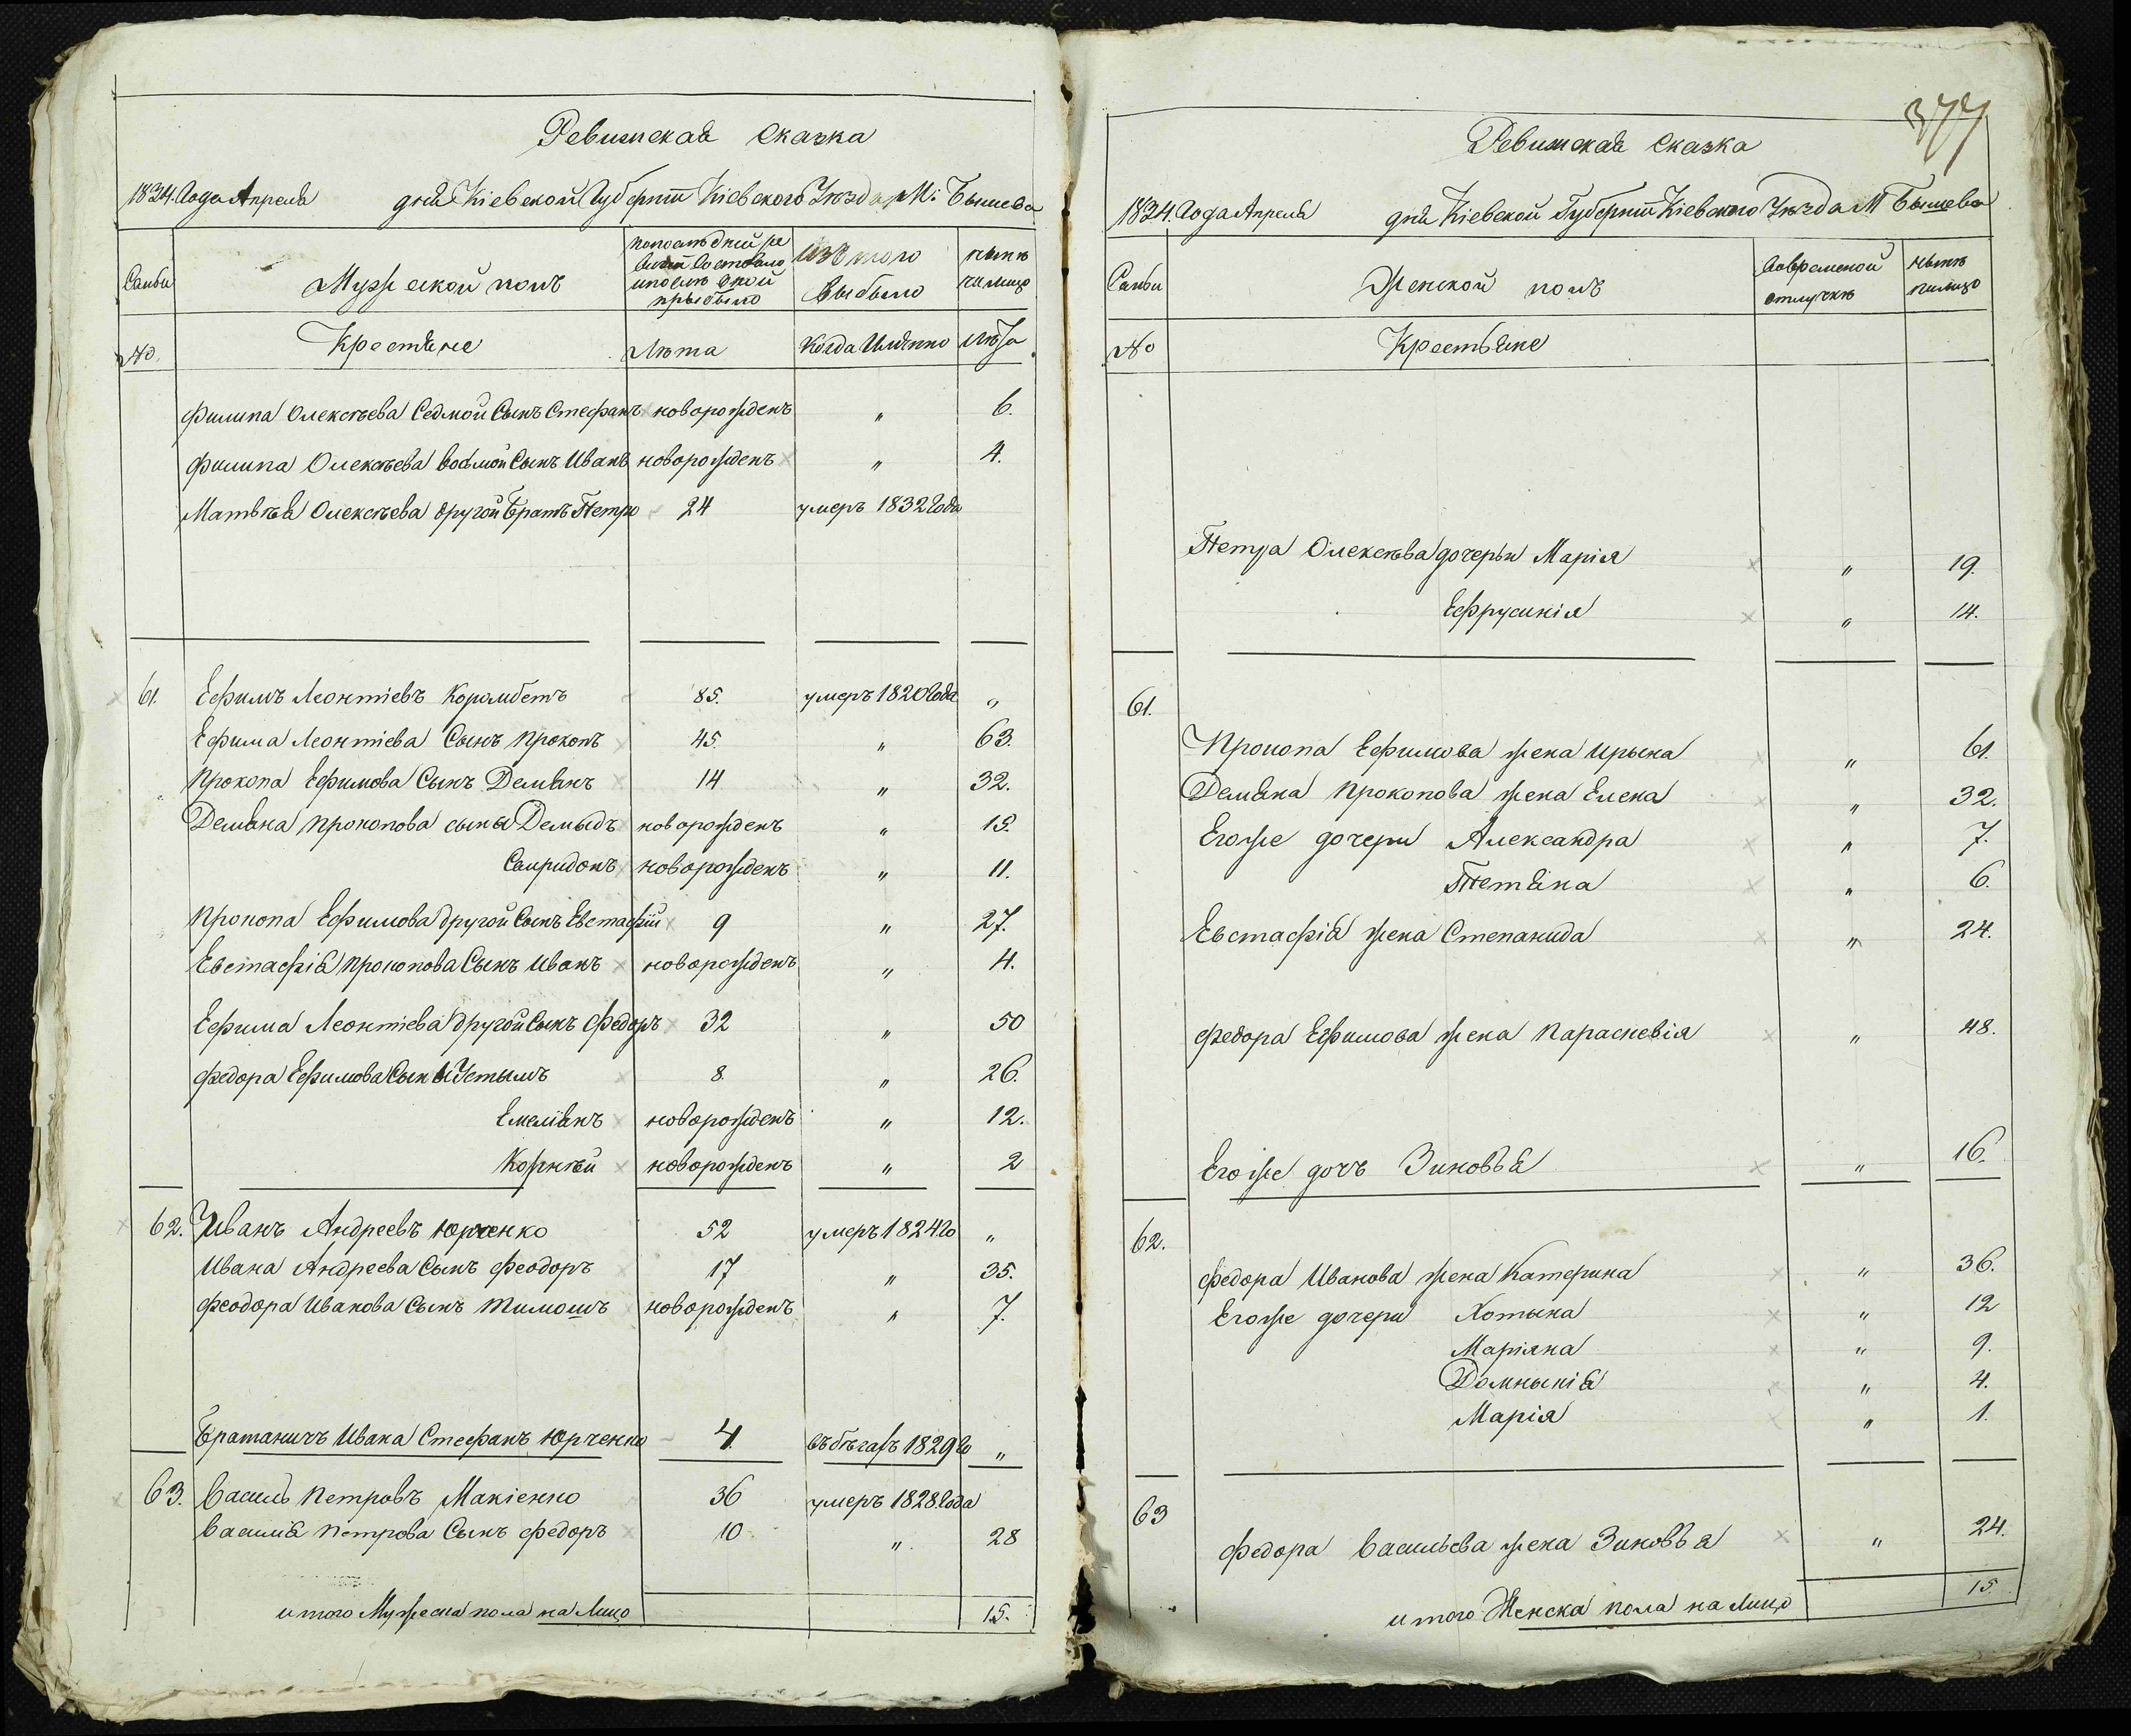 Ревижская Сказка
1834. Года Апреля дня Кіевской Губерніи Кіевского Уезда М: Бышева
Семьи
Мужеской полъ
По последней ревизіи состояло и после оной прибыло
Изъ того выбыло
ныне на лицо
№.
Крестяне
Лета
Когда Именно
Лета
Филипа Олексѣева Седмой Сынъ Стефанъ новорожденъ „ 6.
Филипа Олексѣева восьмой Сынъ Иванъ новорожденъ „ 4.
Матвѣя Олексѣева другой Братъ Петро 24 умеръ 1832 Года
61. Ефимъ Леонтіевъ 85. умеръ 1820 Года „
Ефима Леонтіева Сынъ Прокопъ 45. „ 63.
Прокопа Ефимова Сынъ Демянъ 14 „ 32.
Демяна Прокопова сыны Демыдъ новорожденъ „ 15.
Свиридонъ новорожденъ „ 11.
Прокопа Ефимова другой Сынъ Евстафій 9 „ 27.
Евстафія Прокопова Сынъ Иванъ новорожденъ „ 4.
Ефима Леонтіева другой Сынъ Федоръ 32 „ 50
Федора Ефимова Сыны Устымъ 8. „ 26.
Емеліянъ новорожденъ „ 12.
Корнѣй новорожденъ „ 2
62. Иванъ Андреевъ Юрченко 52 умеръ 1824 го „
Ивана Андреева Сынъ Феодоръ 17 „ 35.
Феодора Иванова Сынъ Тимошъ новорожденъ „ 7.
Братаничъ Ивана Стефанъ Юрченко 4. въ бѣгахъ 1829 го „
63. Василь Петровъ Макіенко 36 умеръ 1828. Года
Василя Петрова Сынъ Федоръ 10 „ 28
итого Мужеска пола на Лицо 15.
377
Ревижская Сказка
1834. Года Апреля дня Кіевской Губерніи Кіевского Уезда М Бышева
Семьи
Женской полъ
Во временной отлучкѣ
ныне на лицо
№
Крестьяне
Петра Олексѣва дочерьи Марія „ 19.
Ефрусинія „ 14.
61.
Прокопа Ефимова жена Ирына „ 61.
Демяна Прокопова жена Елена „ 32.
Егожъе дочери Александра „ 7.
Тетяна „ 6.
Евстафія жена Степанида „ 24.
Федора Ефимова жена Параскевія „ 48.
Егоже дочъ Зиновья „ 16.
62.
Федора Иванова жена Катерина „ 36.
Егоже дочери Хотына „ 12
Маріяна „ 9.
Домнынія „ 4.
Марія „ 1.
63
Федора Васильева жена Зиновья „ 24.
итого Женска пола на Лицо 15